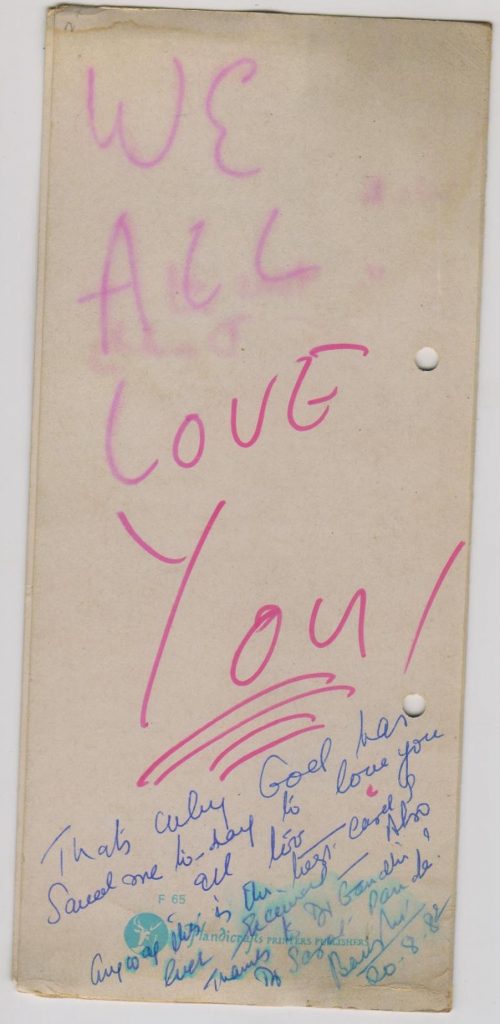 WE
ALL
LOVE
YOU!
Thats why God has
Saved me to-day to love you
all too
Anyway this is the best card I
ever received — Also
Thanks to Dr Gandhi
Dr Pande!
20.8.82
F 65
Handicrafts PRINTERS PUBLISHERS